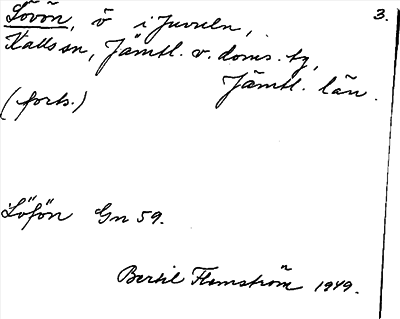 Lövön, ö i Juveln, 3.
Kalls sn, Jämtl. v. doms. tg,
Jämtl. län.
(forts.)
Löfön Gn 59.
Bertil Flemström 1949.